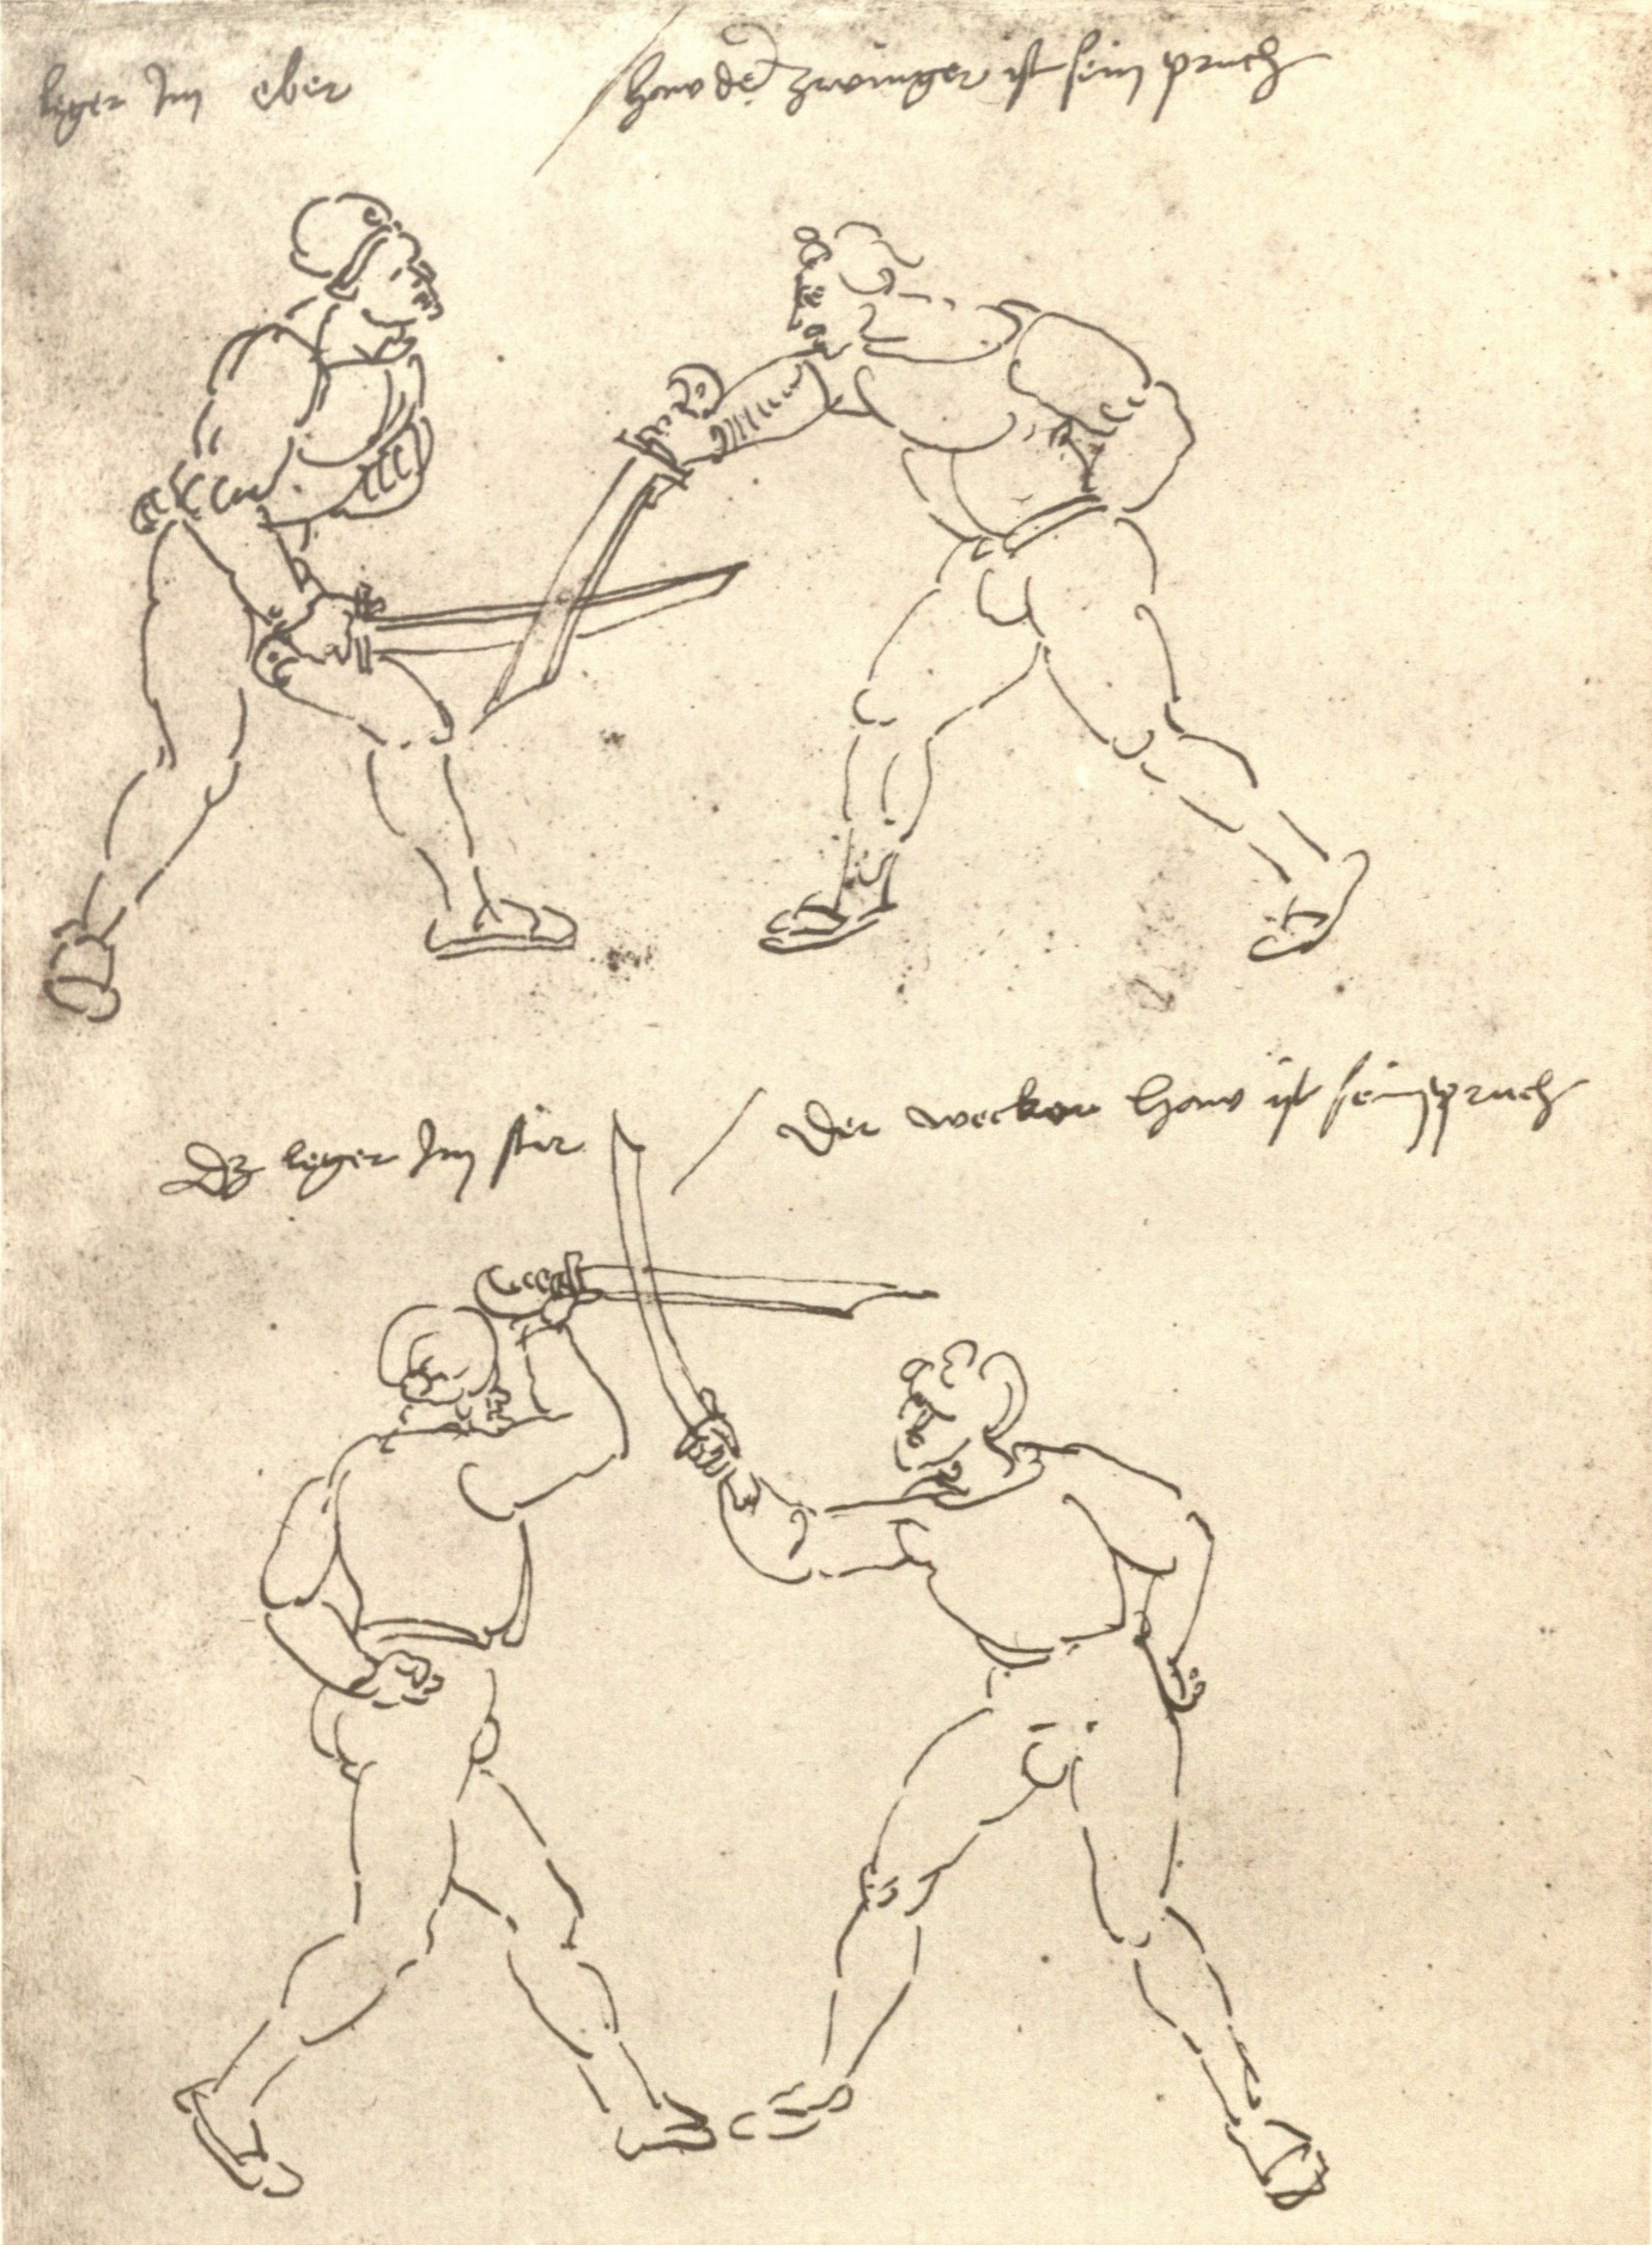 leger Im eber / haw der zwinger ist sein pruch
Dz leger Im stir / Der wecker haw ist sein pruch